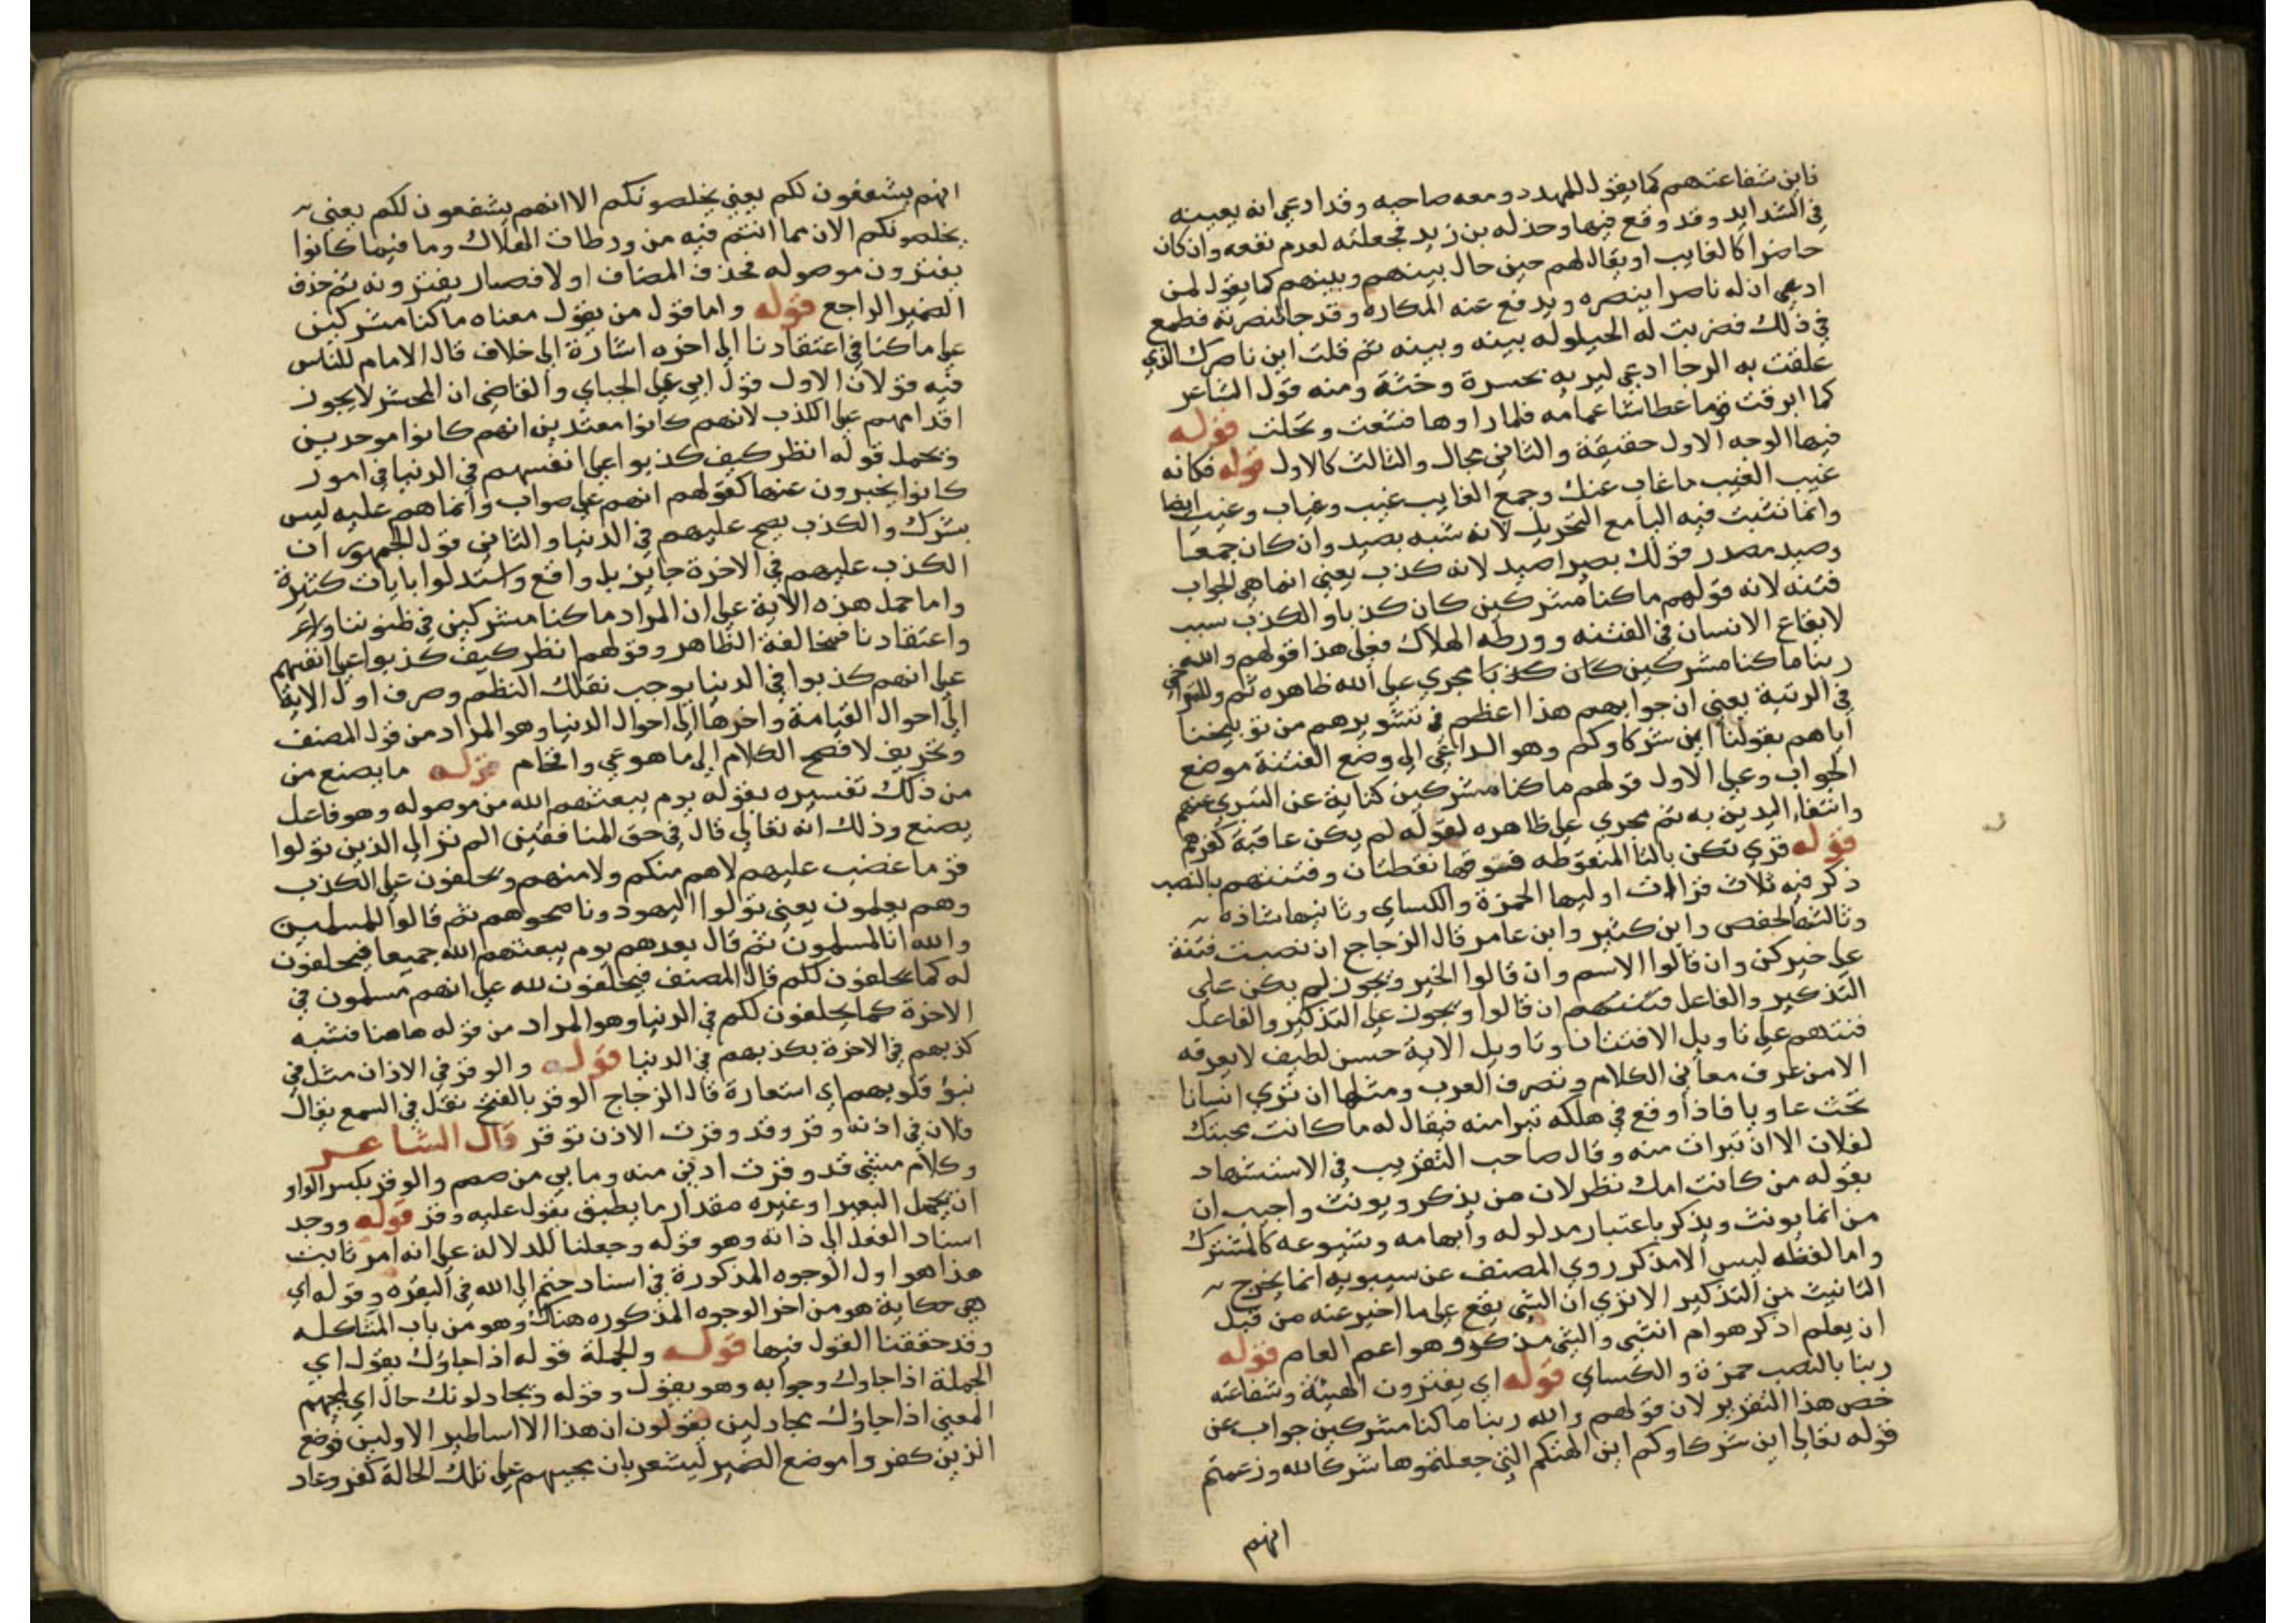 فاين شفاعتهم كما يقول للمهدد ومعه صاحبه وقد ادعي انه يعينه
في الشدايد وقد وقع فيها وخذله بن زيد فجعلته لعدم نفعه وان كان
حاضرا كالغايب او يقال لهم حين حال بينهم وبينهم كما يقول لمن
ادعي ان له ناصرا ينصره ويدفع عنه المكاره وقد جا لنصرته فطمع
في ذلك فضربت له الحيلوله بينه وبينه ثم قلت اين ناصرك الذي
علقت به الرجا ادعي ليريه بحسرة وخشة ومنه قول الشاعر
كما ابرقت قوما عطاشا غمامه فلما راوها قشعت وتجلت قوله
فيها الوجه الاول حقيقة والثاني مجاز والثالث كالاول قوله فكانه
غيب الغيب ما غاب عنك وجمع الغايب غيب وغياب وغيب ايضا
وانما تثبت فيه اليا مع التحريك لانه شبه بصيد وان كان جمعا
وصيد مصدر قولك بصير اصيد لانه كذب يعني انما هي الجواب
فتنه لانه قولهم ما كنا مشركين كان كذبا والكذب سبب
لايقاع الانسان في الفتنه وورطه الهلاك فعلي هذا قولهم والله
ربنا ما كنا مشركين كان كذبا مجري علي الله ظاهره ثم وللتراخي
في الرتبة يعني ان جوابهم هذا اعظم في تشويرهم من توبيخنا
اياهم بقولنا اين شركاوكم وهو الداعي الي وضع الفتنة موضع
الجواب وعلي الاول قولهم ما كنا مشركين كناية عن التبري عنهم
وانتفاء التدين به ثم مجري علي ظاهره لقوله لم يكن عاقبة كفرهم
قوله قري تكن بالتا المنقوطه فوقها نقطتان وفتنتهم بالنصب
ذكر فيه ثلاث قراات اوليها الحمزة والكساي وثانيها شاذه
وثالثها لحفص وابن كثير وابن عامر قال الزجاج ان نصبت فتنة
علي خبر كن وان قالوا الاسم وان قالوا الخبر ويجوز لم يكن علي
التذكير والفاعل فتنتهم ان قالوا ويجوز علي التذكير والفاعل
فتنتهم علي تاويل الافتتان وتاويل الاية حسن لطيف لا يعرفه
الا من عرف معاني الكلام وتصرف العرب ومثلها ان تري انسانا
تحث عاويا فاذا وقع في هلكه تبرا منه فيقال له ما كانت محبتك
لفلان الا ان تبرات منه وقال صاحب التقريب في الاستشهاد
بقوله من كانت امك نظر لان من يذكر ويونث واجيب ان
من انما يونث ويذكر باعتبار مدلوله وابهامه وشيوعه كالمشترك
واما لفظه ليس الا مذكر روي المصنف عن سيبويه انما يخرج
التانيث من التذكير الا تري ان الشي يقع علي ما اخبر عنه من قبل
ان يعلم اذكر هو ام انثي والشي مذكر وهو اعم العام قوله
ربنا بالنصب حمزة والكساي قوله اي يفترون الهيئة وشفاعته
خص هذا التقرير لان قولهم والله ربنا ما كنا مشركين جواب عن
قوله تعالي اين شركاوكم اين الهتكم التي جعلتموها شركا لله وزعمتم
انهم
انهم يشفعون لكم يعني يخلصونكم الا انهم يشفعون لكم يعني
يخلصونكم الان مما انتم فيه من ورطات الهلاك وما فيما كانوا
يفترون موصوله فحذف المضاف اولا فصار يفترونه ثم حذف
الضمير الراجع قوله واما قول من يقول معناه ما كنا مشركين
علي ما كنا في اعتقادنا الي اخره اشارة الي خلاف قال الامام للناس
فيه قولان الاول قول ابي علي الجباي والقاضي ان المحشر لا يجوز
اقدامهم علي الكذب لانهم كانوا معتدين انهم كانوا موحدين
ويحمل قوله انظر كيف كذبوا علي انفسهم في الدنيا في امور
كانوا يخبرون عنها كقولهم انهم علي صواب وانما هم عليه ليس
بشرك والكذب يصح عليهم في الدنيا والثاني قول الجمهور ان
الكذب عليهم في الاخرة جايز بل واقع واستدلوا بايات كثيرة
واما حمل هذه الاية علي ان المراد ما كنا مشركين في ظنوننا
واعتقادنا مخالفة الظاهر وقولهم انظر كيف كذبوا علي انفسهم
علي انهم كذبوا في الدنيا يوجب تفكك النظم وصرف اول الاية
الي احوال القيامة واخرها الي احوال الدنيا وهو المراد من قول المصنف
وتحريف لافصح الكلام الي ما هو عي وافحام قوله ما يصنع من
من ذلك تفسيره بقوله يوم يبعثهم الله من موصوله وهو فاعل
يصنع وذلك انه تعالي قال في حق المنافقين الم تر الي الذين تولوا
قوما غضب عليهم لاهم منكم ولا منهم ويحلفون علي الكذب
وهم يعلمون يعني تولوا اليهود وناصحوهم ثم قالوا للمسلمين
والله انا لمسلمون ثم قال بعدهم يوم يبعثهم الله جميعا فيحلفون
له كما يحلفون لكم قال المصنف فيحلفون لله علي انهم مسلمون في
الاخرة كما يحلفون لكم في الدنيا وهو المراد من قوله هاهنا فشبه
كذبهم في الاخرة بكذبهم في الدنيا قوله والوقر في الاذان مثل في
نبؤ قلوبهم اي استعارة قال الزجاج الوقر بالفتح ثقل في السمع يقال
فلان في اذنه وقر وقد وقرت الاذن توقر قال الشاعر
وكلام سيئ قد وقرت اذني منه وما بي من صمم والوقر بكسر الواو
ان يحمل البعير او غيره مقدار ما يطيق يقول عليه وقر قوله ووجد
اسناد الفعل الي ذاته وهو قوله وجعلنا للدلالة علي انه امر ثابت
هذا هو اول الوجوه المذكورة في اسناد ختم الي الله في البقره وقوله اي
هي حكاية هو من اخر الوجوه المذكوره هناك وهو من باب المشاكله
وقد حققنا القول فيها قوله والجملة قوله اذا جاؤك يقول اي
الجملة اذا جاوك وجوابه وهو يقول وقوله ويجادلونك حال اي
المعني اذا جاؤك مجادلين يقولون ان هذا الا اساطير الاولين فوضع
الذين كفروا موضع الضمير ليشعر بان مجيهم علي تلك الحالة كفر وعناد